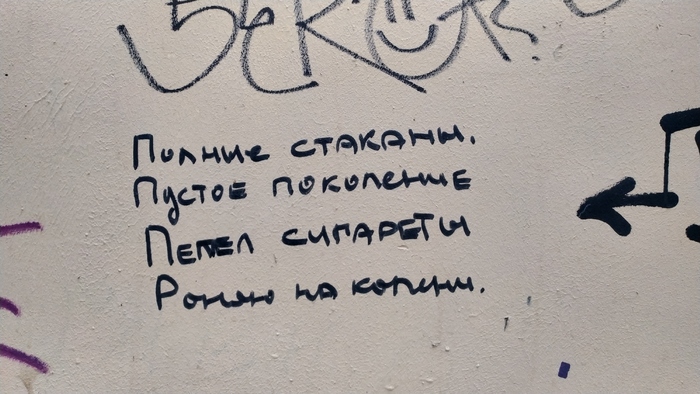 Полные стаканы.
Пустое поколение
Пепел сигареты
Роняю на колени.